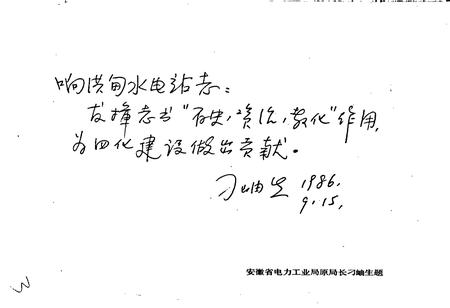 响洪甸水电站志：
发挥志书"存史，资治，教化"作用，
为四化建设做出贡献。
刁岫生 1986.
9.15.
安徽省电力工业局原局长刁岫生题